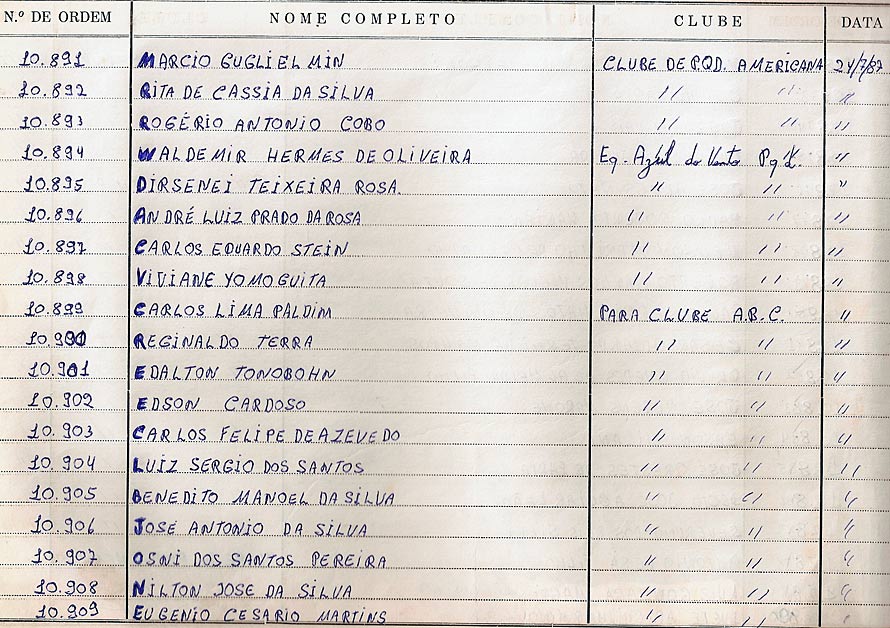 N.º DE ORDEM NOME COMPLETO CLUBE DATA
10.891 MARCIO GUGLIELMIN CLUBE DE PQD. AMERICANA 24/7/87
10.892 RITA DE CASSIA DA SILVA " " "
10.893 ROGÉRIO ANTONIO COBO " " "
10.894 WALDEMIR HERMES DE OLIVEIRA Eq. Azul do Vento "
10.895 DIRSENEI TEIXEIRA ROSA. " " "
10.896 ANDRÉ LUIZ PRADO DA ROSA " " "
10.897 CARLOS EDUARDO STEIN " " "
10.898 VIVIANE YOMOGUITA " " "
10.899 CARLOS LIMA PALDIM PARA CLUBE A.B.C. "
10.900 REGINALDO TERRA " " "
10.901 EDALTON TONOBOHN " " "
10.902 EDSON CARDOSO " " "
10.903 CARLOS FELIPE DE AZEVEDO " " "
10.904 LUIZ SERGIO DOS SANTOS " " "
10.905 BENEDITO MANOEL DA SILVA " " "
10.906 JOSE ANTONIO DA SILVA " " "
10.907 OSNI DOS SANTOS PEREIRA " " "
10.908 NILTON JOSE DA SILVA " " "
10.909 EUGENIO CESARIO MARTINS " " "